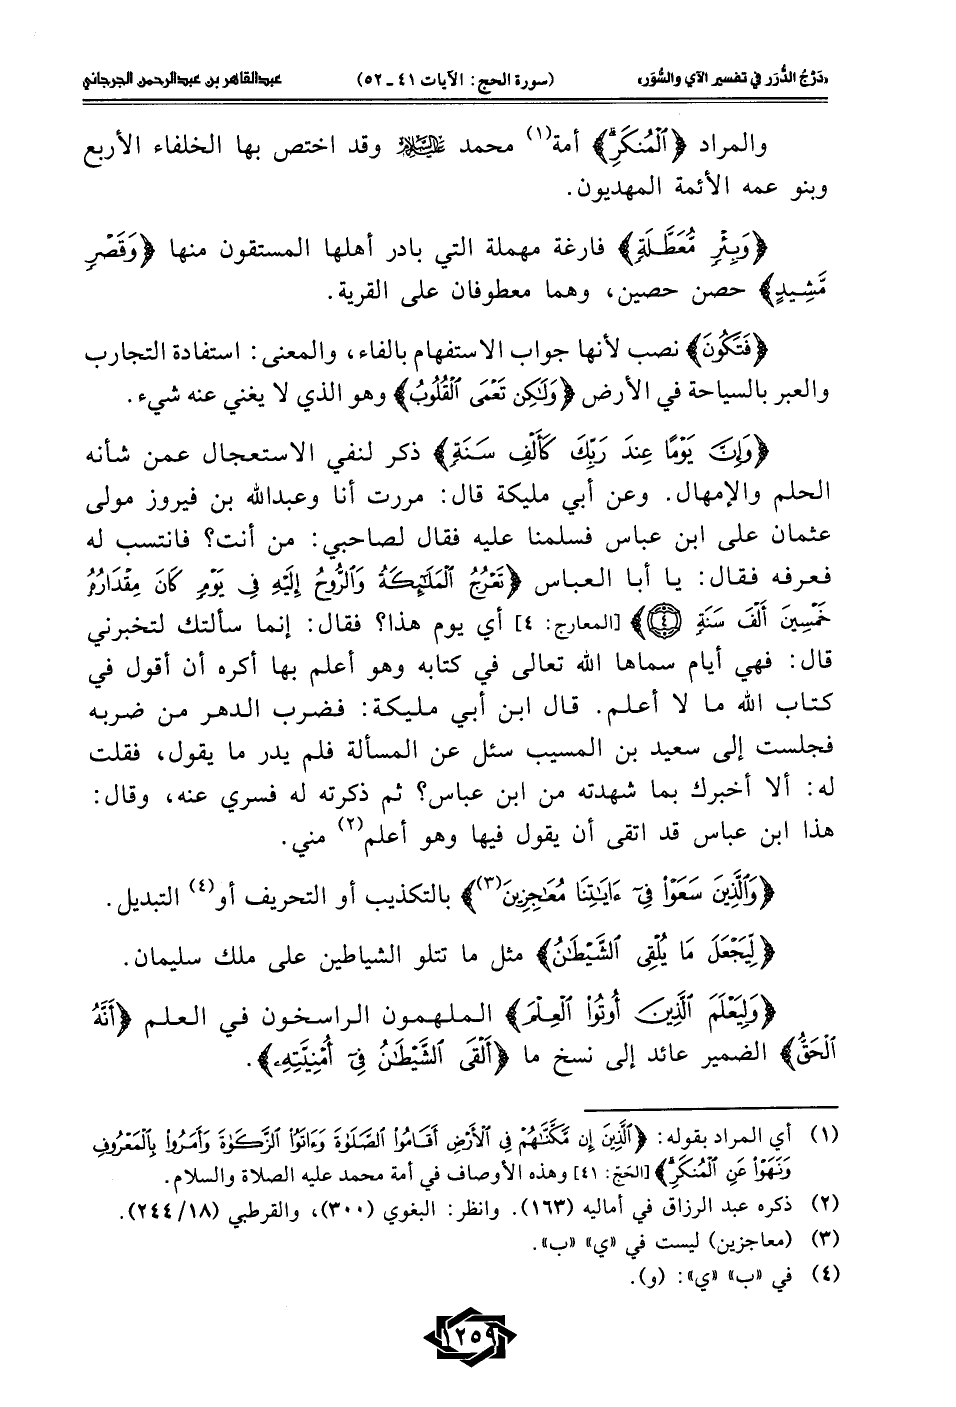 «دَرْجُ الدُّرَر في تفسير الآي والسُّوَر» (سورة الحج: الآيات ٤١ ـ ٥٢) عبدالقاهر بن عبدالرحمن الجرجاني
والمراد ﴿ٱلْمُنكَرِۗ﴾ أمة(١) محمد عليه السلام وقد اختص بها الخلفاء الأربع
وبنو عمه الأئمة المهديون.
﴿وَبِئْرٍ مُّعَطَّلَةٍ﴾ فارغة مهملة التي بادر أهلها المستقون منها ﴿وَقَصْرٍ
مَّشِيدٍ﴾ حصن حصين، وهما معطوفان على القرية.
﴿فَتَكُونَ﴾ نصب لأنها جواب الاستفهام بالفاء، والمعنى: استفادة التجارب
والعبر بالسياحة في الأرض ﴿وَلَٰكِن تَعْمَى ٱلْقُلُوبُ﴾ وهو الذي لا يغني عنه شيء.
﴿وَإِنَّ يَوْمًا عِندَ رَبِّكَ كَأَلْفِ سَنَةٍ﴾ ذكر لنفي الاستعجال عمن شأنه
الحلم والإمهال. وعن أبي مليكة قال: مررت أنا وعبدالله بن فيروز مولى
عثمان على ابن عباس فسلمنا عليه فقال لصاحبي: من أنت؟ فانتسب له
فعرفه فقال: يا أبا العباس ﴿تَعْرُجُ ٱلْمَلَٰٓئِكَةُ وَٱلرُّوحُ إِلَيْهِ فِى يَوْمٍ كَانَ مِقْدَارُهُۥ
خَمْسِينَ أَلْفَ سَنَةٍ ۝٤﴾ [المعارج: ٤] أي يوم هذا؟ فقال: إنما سألتك لتخبرني
قال: فهي أيام سماها الله تعالى في كتابه وهو أعلم بها أكره أن أقول في
كتاب الله ما لا أعلم. قال ابن أبي مليكة: فضرب الدهر من ضربه
فجلست إلى سعيد بن المسيب سئل عن المسألة فلم يدر ما يقول، فقلت
له: ألا أخبرك بما شهدته من ابن عباس؟ ثم ذكرته له فسري عنه، وقال:
هذا ابن عباس قد اتقى أن يقول فيها وهو أعلم(٢) مني.
﴿وَٱلَّذِينَ سَعَوْا۟ فِىٓ ءَايَٰتِنَا مُعَٰجِزِينَ(٣)﴾ بالتكذيب أو التحريف أو(٤) التبديل.
﴿لِّيَجْعَلَ مَا يُلْقِى ٱلشَّيْطَٰنُ﴾ مثل ما تتلو الشياطين على ملك سليمان.
﴿وَلِيَعْلَمَ ٱلَّذِينَ أُوتُوا۟ ٱلْعِلْمَ﴾ الملهمون الراسخون في العلم ﴿أَنَّهُ
ٱلْحَقُّ﴾ الضمير عائد إلى نسخ ما ﴿أَلْقَى ٱلشَّيْطَٰنُ فِىٓ أُمْنِيَّتِهِۦ﴾.
(١) أي المراد بقوله: ﴿ٱلَّذِينَ إِن مَّكَّنَّٰهُمْ فِى ٱلْأَرْضِ أَقَامُوا۟ ٱلصَّلَوٰةَ وَءَاتَوُا۟ ٱلزَّكَوٰةَ وَأَمَرُوا۟ بِٱلْمَعْرُوفِ
وَنَهَوْا۟ عَنِ ٱلْمُنكَرِۗ﴾ [الحَجّ: ٤١] وهذه الأوصاف في أمة محمد عليه الصلاة والسلام.
(٢) ذكره عبد الرزاق في أماليه (١٦٣). وانظر: البغوي (٣٠٠)، والقرطبي (٢٤٤/١٨).
(٣) (معاجزين) ليست في «ي» «ب».
(٤) في «ب» «ي»: (و).
١٢٥٩